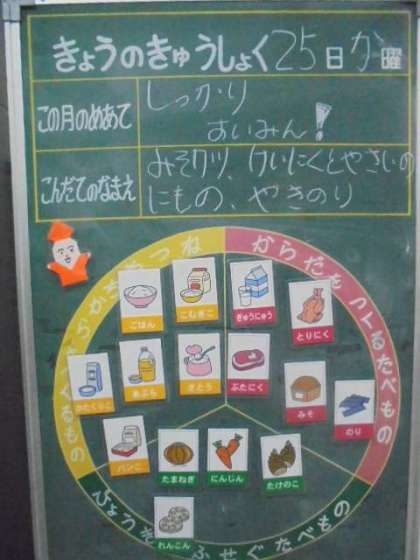 きょうのきゅうしょく25日か曜
この月のめあて
しっかり
すいみん!
こんだてのなまえ
みそカツ、けいにくとやさいの
にもの、やきのり
からだをつくるたべもの
ごはん
こむぎこ
ぎゅうにゅう
とりにく
かたくりこ
あぶら
さとう
ぶたにく
みそ
のり
パンこ
たまねぎ
にんじん
たけのこ
れんこん